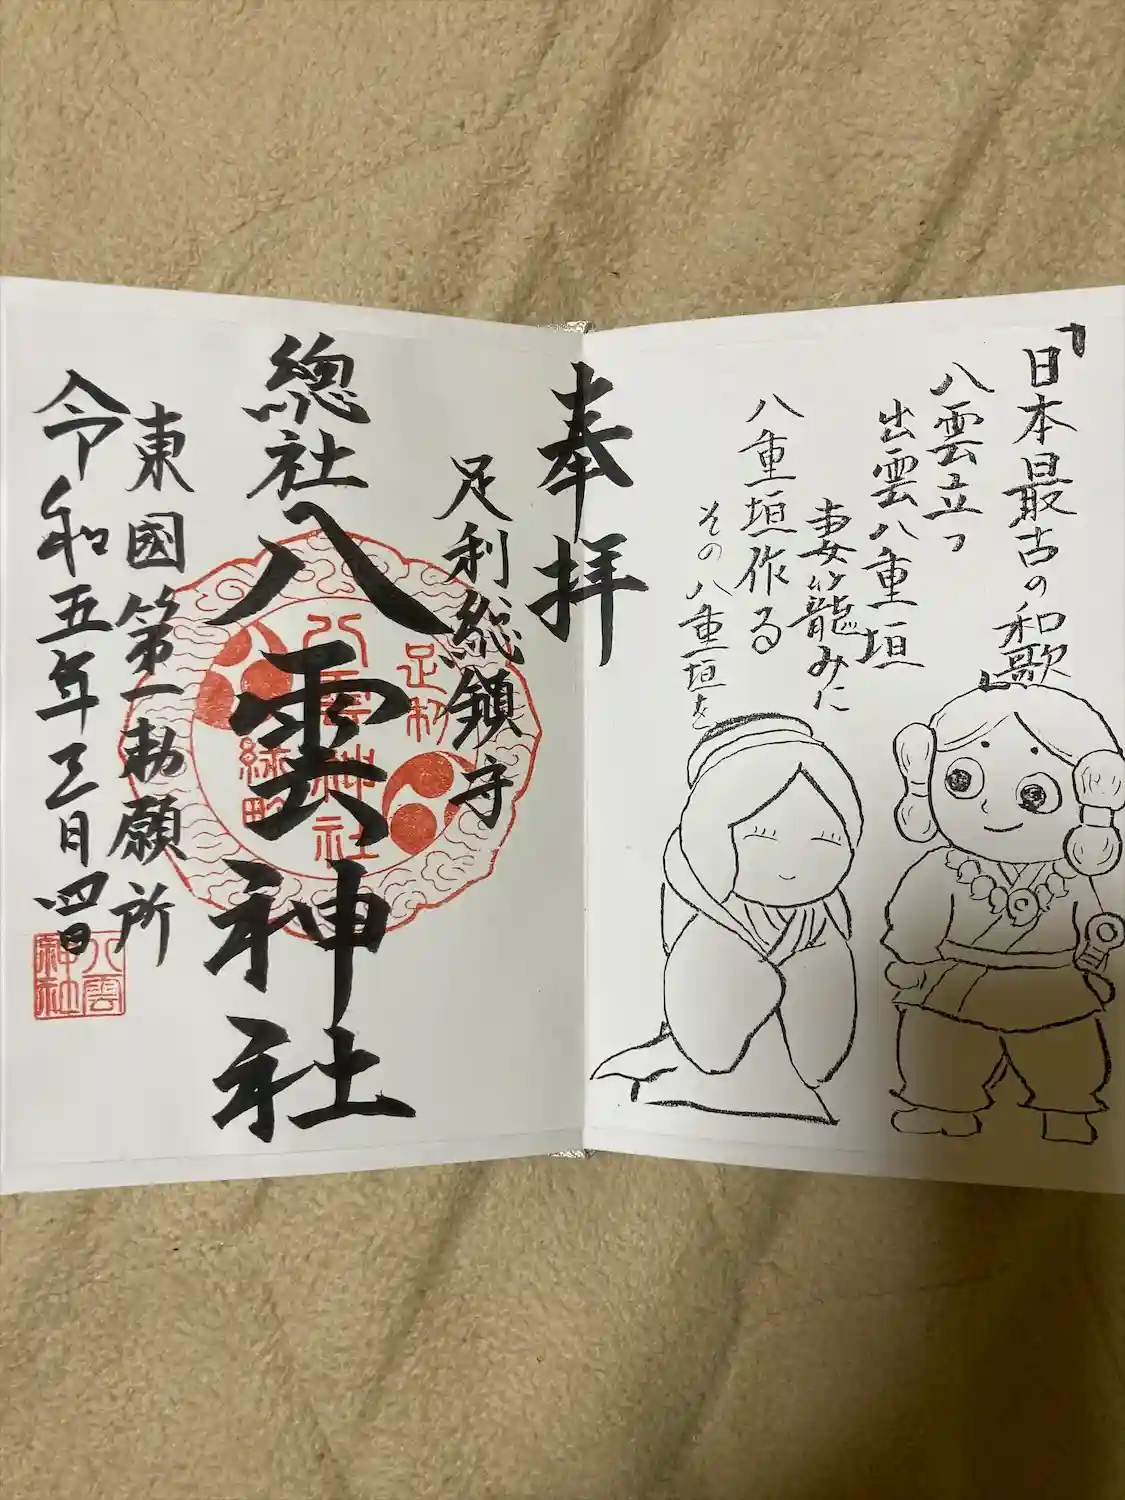 「日本最古の和歌」
八雲立つ
出雲八重垣
妻籠みに
八重垣作る
その八重垣を
奉拝
足利総鎮守
總社八雲神社
東國第一勅願所
令和五年三月四日
八雲神社
足利
緑町
八雲神社